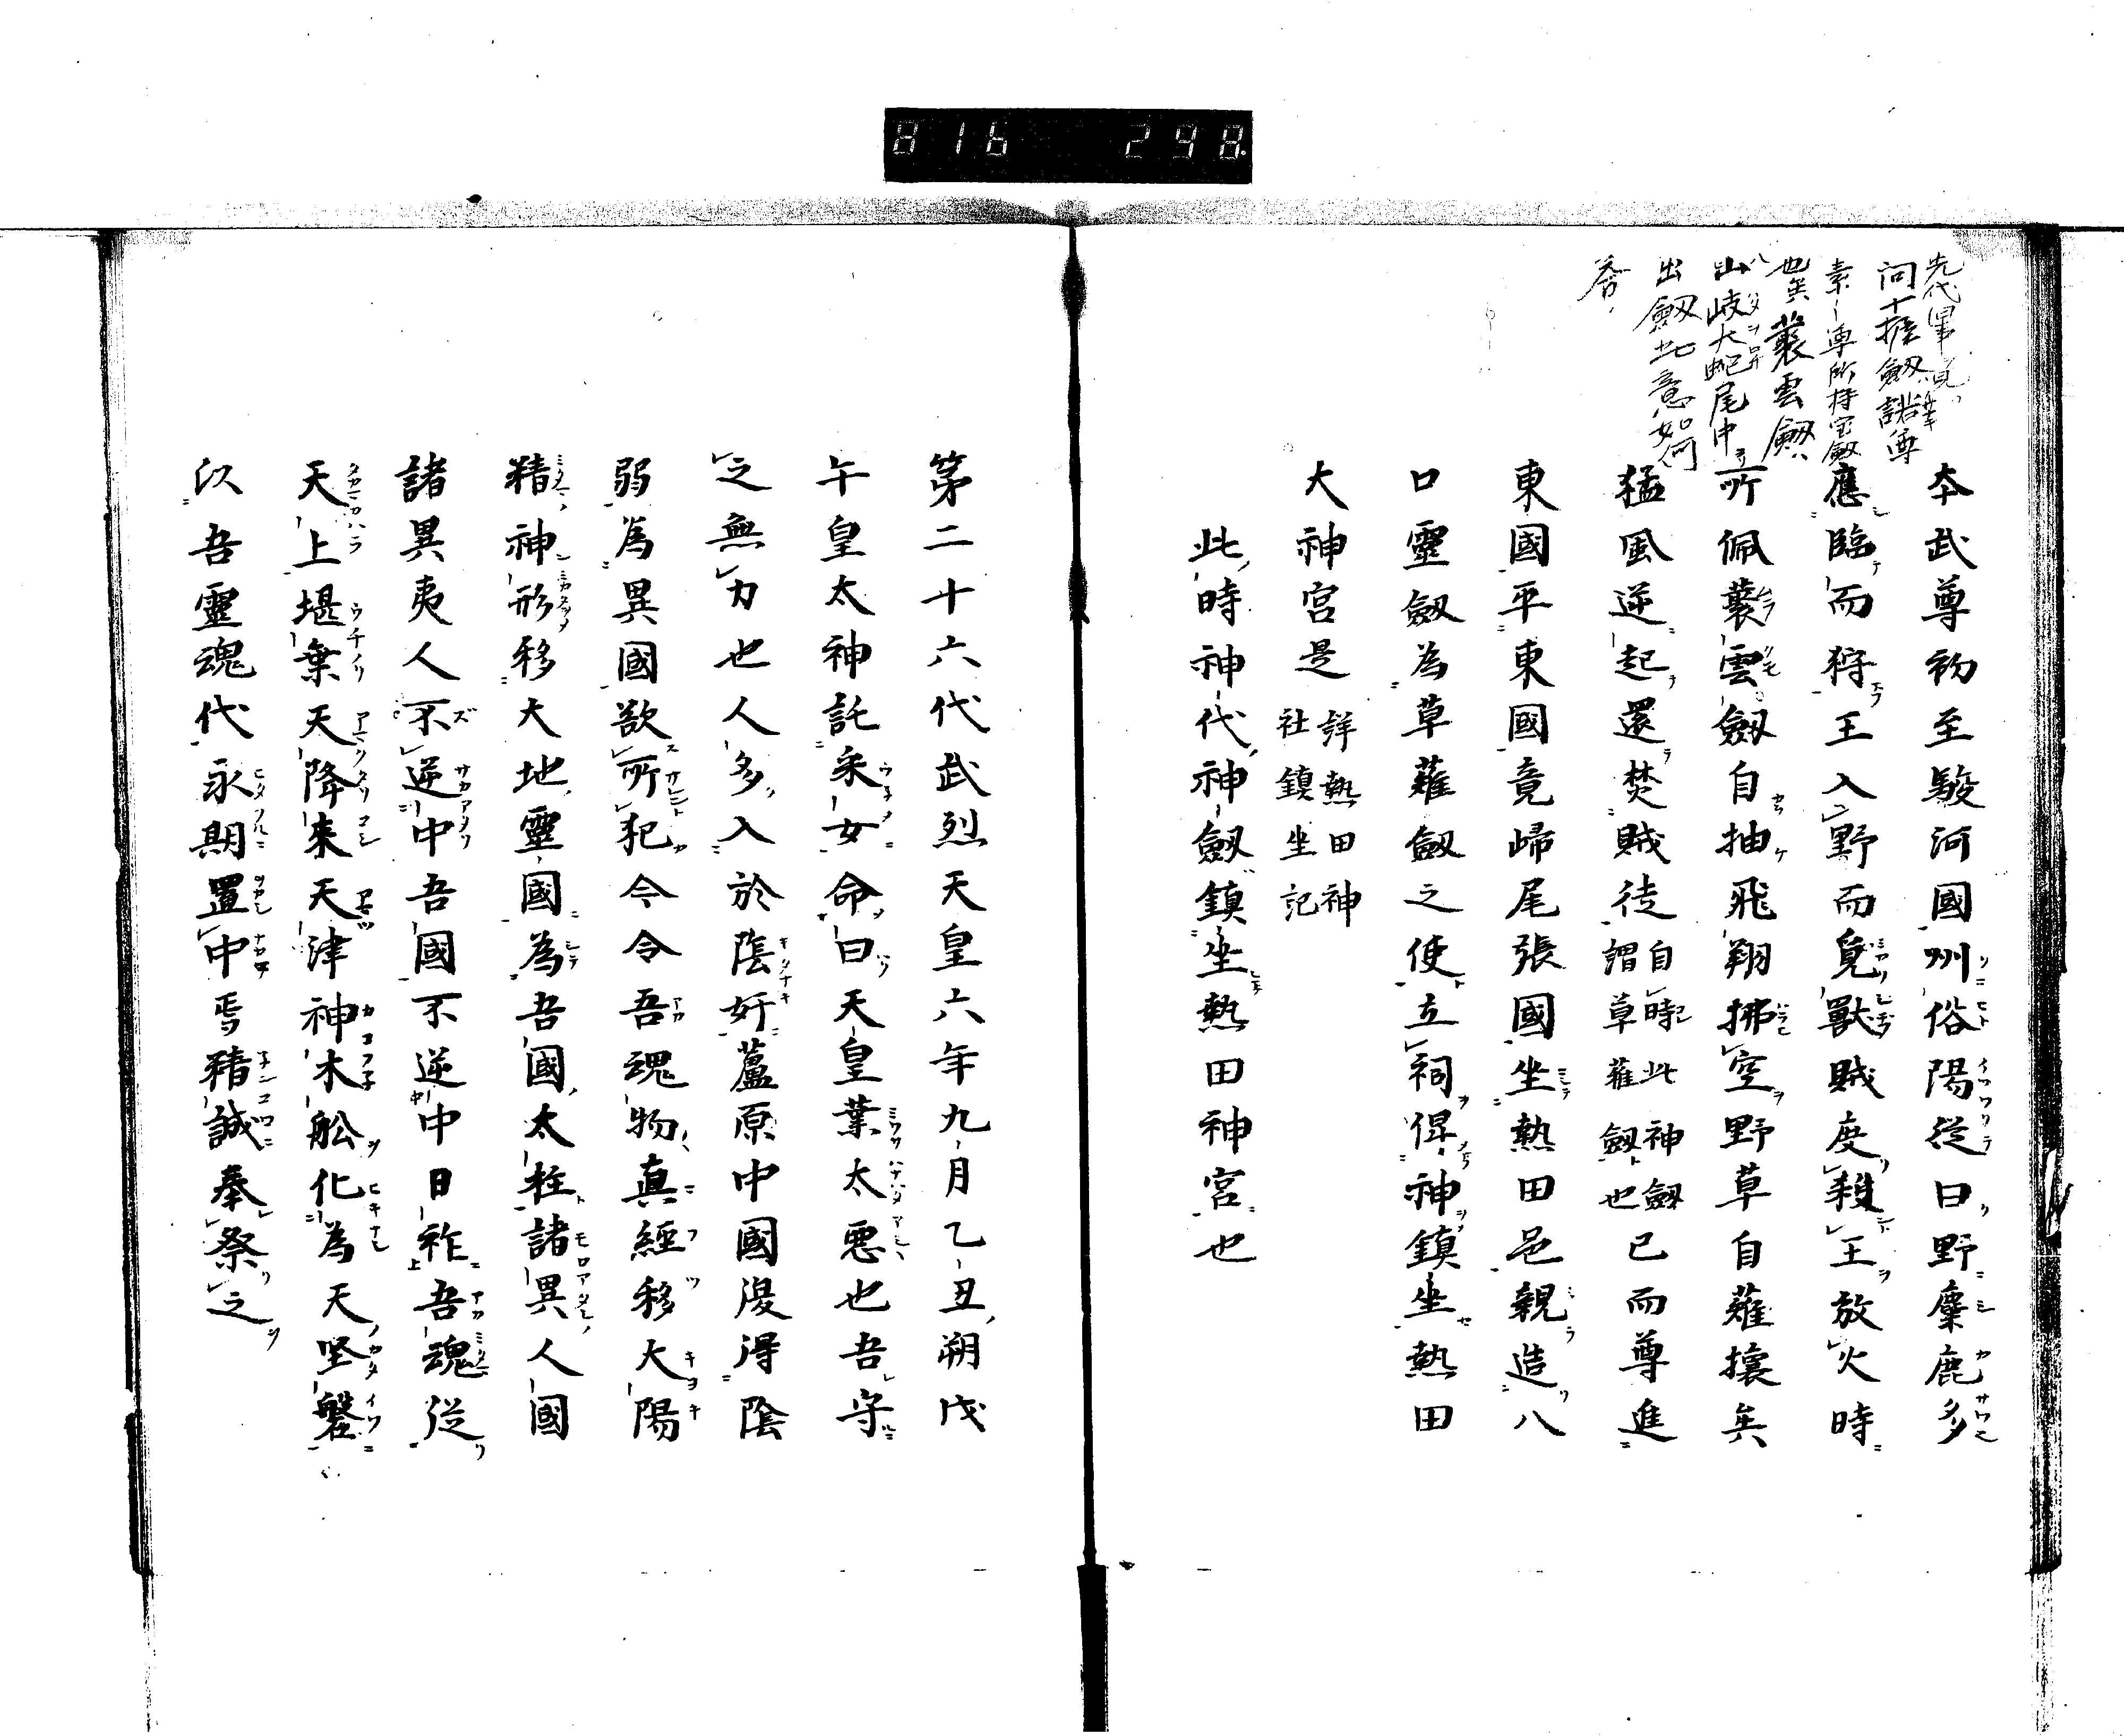 816 298
先代
問十握劔諾尊
素ー尊所持宝劔
也矣叢雲劔
八山岐大蛇尾中
出劔此意如何
答
本武尊初至駿河國州俗陽從曰野麋鹿多
應臨而狩王入野而覓獸賊度殺王放火時
所佩叢雲劔自抽飛翔拂空野草自薙攘矣
猛風逆起還焚賊徒自時此神劔謂草薙劔也已而尊進
東國平東國竟歸尾張國坐熱田邑親造八
口靈劔為草薙劔之使立祠侭神鎮坐熱田
大神宮是詳熱田神社鎮坐記
此時神代神劔鎮坐熱田神宮也
第二十六代武烈天皇六年九月乙丑朔戊
午皇太神託采女命曰天皇葉太悪也吾守
之無力也人多入於陰奸蘆原中國漫得陰
弱為異國欲所犯令令吾魂物真經移大陽
精神形移大地靈國為吾國太柱諸異人國
諸異夷人不逆中吾國不逆中日祚吾魂從
天上堪乗天降来天津神木舩化為天坚磐
以吾靈魂代永期置中焉精誠奉祭之